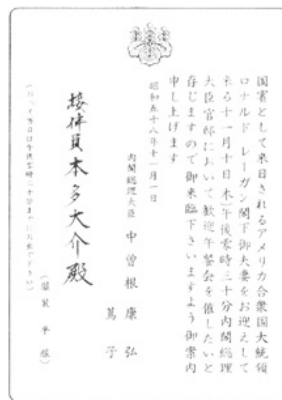 国賓として来日されるアメリカ合衆国大統領
ロナルド レーガン閣下御夫妻をお迎えして
来る十一月十日(木)午後零時三十分内閣総理
大臣官邸において歓迎午餐会を催したいと
存じますので御来臨下さいますよう御案内
申し上げます
昭和五十八年十一月一日
内閣総理大臣 中曽根康弘
蔦子
接伴員本多大介殿
(服装 平服)